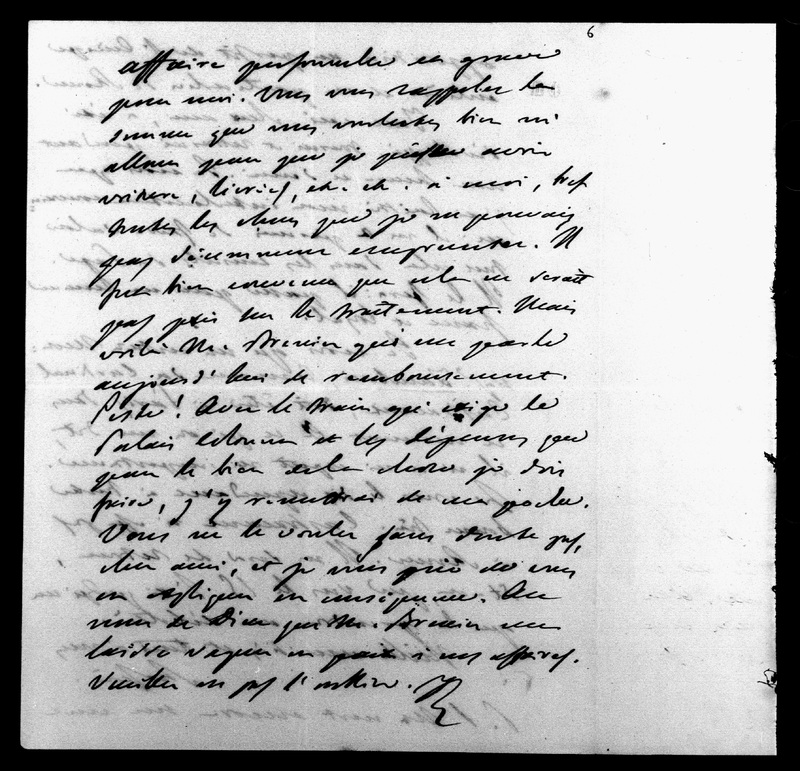 6
affaire personnelle et grave
pour moi. Vous vous rappelez la
somme que vous voulutes bien m'
allouer pour que je pusse avoir
voiture, livrées, etc. etc. à moi, bref
toutes les choses que je ne pouvais
pas décemment emprunter. Il
fut bien convenu que cela ne serait
pas pris sur le traitement. Mais
voilà Mr. Brenier qui me parle
aujourd'hui de remboursement.
Peste! Avec le train qui exige le
Palais Colonna et les dépenses que
pour le bien de la chose je dois
faire, j'y remettrai de ma poche.
Vous ne le voulez sans doute pas,
cher ami, et je vous prie de vous
en expliquer en conséquence. Au
nom de Dieu que Mr. Brenier me
laisse vaquer en paix à mes affaires.
Veuillez ne pas l'oublier.